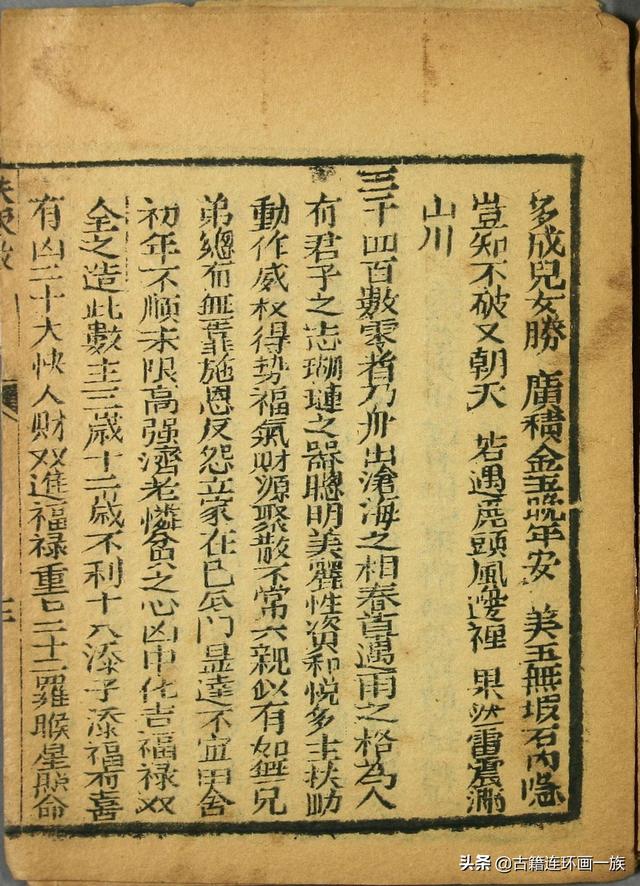 多成兒女勝 廣積金玉晚年安 美玉無瑕石內隱
豈知不破又朝天 若遇鹿頭風邊裡 果然雷震滿
山川
三千四百數零者乃舟出滄海之相春苗遇雨之格為人
有君子之志瑚璉之器聰明美麗性資和悅多主扶助
動作威权得势福氣財源聚散不常六親似有如無兄
弟總有無靠施恩反怨立家在巳公門显達不宜田舍
初年不順末限高强濟老憐貧之心凶中化吉福禄双
全之造此數主三歲十二歲不利十八添子添福有喜
有凶二十大快人財双進福禄重二十二羅睺星照命
头条 @古籍连环画一族